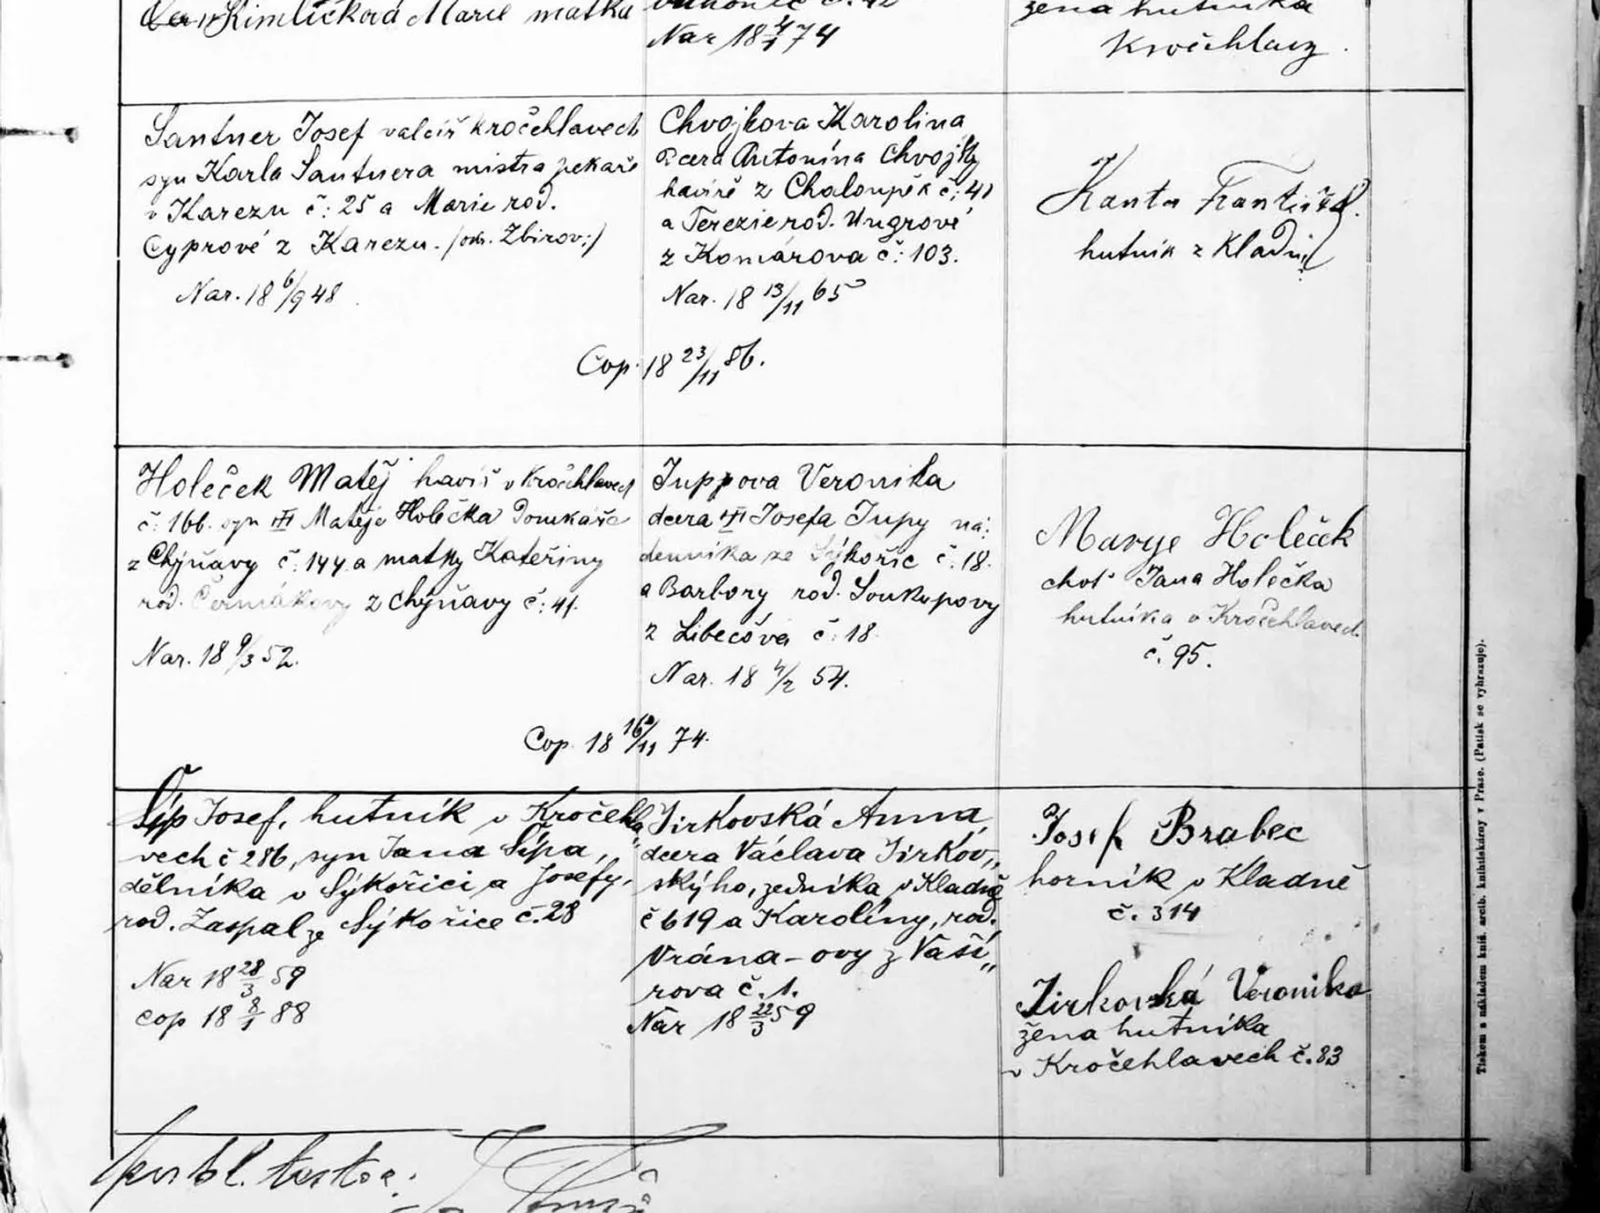 Kimličková Marie matka
č. 42
Nar 18 4/1 74
žena hutníka
Kročehlavy.
Santner Josef valcíř Kročehlavech
syn Karla Santnera mistra pekaře
v Karezu č: 25 a Marie rod.
Cyprové z Karezu. /okr. Zbirov:/
Nar. 18 6/9 48
Chvojkova Karolina
dcera Antonína Chvojky
havíře z Chaloupěk č: 41
a Terezie rod. Ungrové
z Komárova č: 103.
Nar. 18 13/11 65
Cop. 18 23/11 86.
Kanta František.
hutník z Kladna
Holeček Matěj havíř v Kročehlavech
č: 166. syn ♰ Matěje Holečka Domkáře
z Chýňavy č: 144 a matky Kateřiny
rod. Čermákovy z Chýňavy č: 41.
Nar. 18 9/3 52.
Juppova Veronika
dcera ♰ Josefa Jupy ná:
denníka ze Sýkořic č. 18.
a Barbory rod. Soukupovy
z Libečova č: 18
Nar. 18 4/2 54.
Cop. 18 16/11 74.
Marye Holeček
choť Jana Holečka
hutníka v Kročehlavech
č. 95.
Šíp Josef, hutník v Kročehla„
vech č 286, syn Jana Šípa,
dělníka v Sýkořici a Josefy,
rod. Zaspal ze Sýkořice č. 28
Nar 18 28/3 59
cop 18 8/1 88
Jirkovská Anna,
dcera Václava Jirkov„
ského, zedníka v Kladně
č 619 a Karolíny, rod.
Vrána-ovy z Vaší„
rova č. 1.
Nar 18 22/3 59
Josef Brabec
horník v Kladně
č. 314
Jirkovská Veronika
žena hutníka
v Kročehlavech č. 83
Tiskem a nákladem kníž. arcib. knihtiskárny v Praze. (Patisk se vyhrazuje).